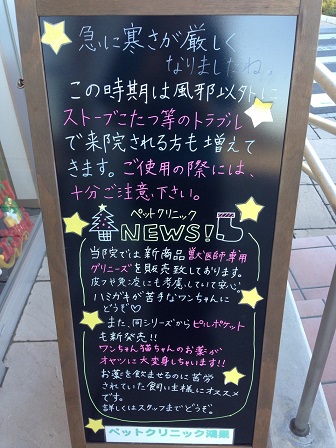 急に寒さが厳しく
なりましたね。
この時期は風邪以外に
ストーブこたつ等のトラブル
で来院される方も増えて
きます。ご使用の際には、
十分ご注意下さい。
ペットクリニック
NEWS!
当院では新商品獣医師専用
グリニーズを販売致しております。
皮フや免疫にも考慮していて安心♪
ハミガキが苦手なワンちゃんに
どうぞ♡
また、同シリーズからピルポケット
も新発売!!
ワンちゃん猫ちゃんのお薬が
オヤツに大変身しちいます!!
お薬を飲ませるのに苦労
されていた飼い主様にオススメ
です。
詳しくはスタッフまでどうぞ。
ペットクリニック鴻巣